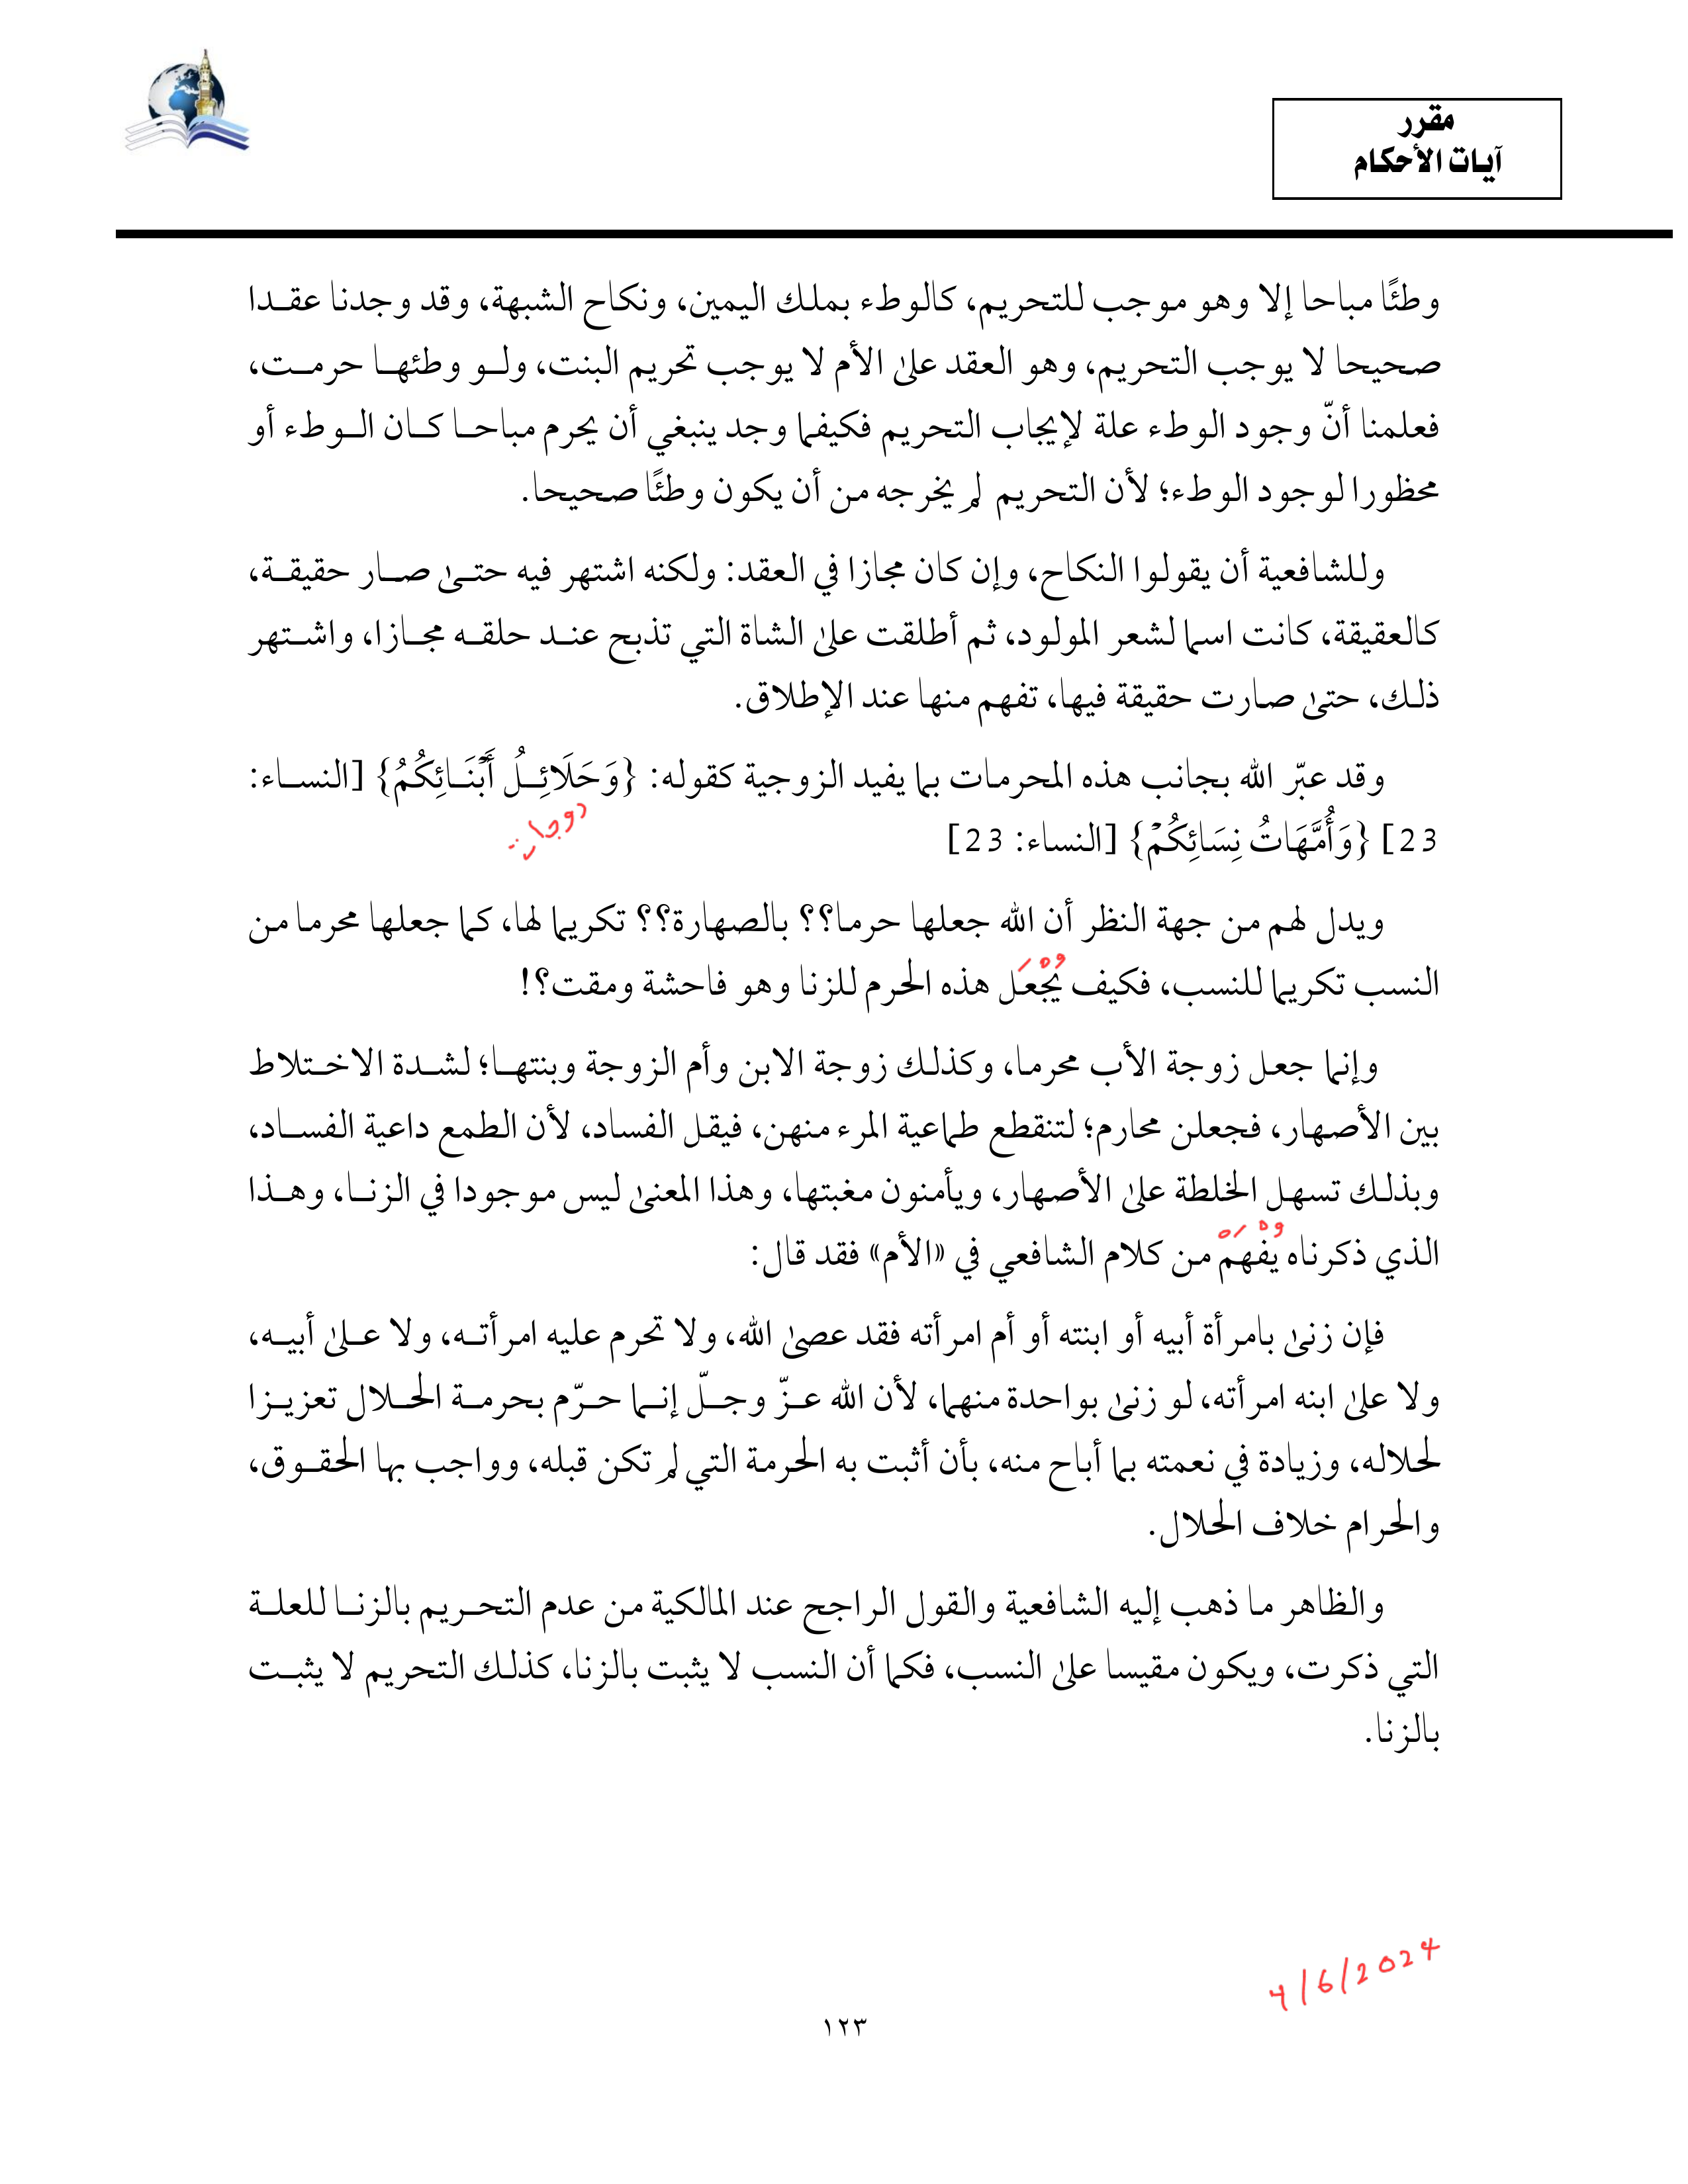 مقرر
آيات الأحكام
وطئًا مباحا إلا وهو موجب للتحريم، كالوطء بملك اليمين، ونكاح الشبهة، وقد وجدنا عقدا
صحيحا لا يوجب التحريم، وهو العقد على الأم لا يوجب تحريم البنت، ولو وطئها حرمت،
فعلمنا أنّ وجود الوطء علة لإيجاب التحريم فكيفما وجد ينبغي أن يحرم مباحا كان الوطء أو
محظورا لوجود الوطء؛ لأن التحريم لم يخرجه من أن يكون وطئًا صحيحا.
وللشافعية أن يقولوا النكاح، وإن كان مجازا في العقد: ولكنه اشتهر فيه حتى صار حقيقة،
كالعقيقة، كانت اسما لشعر المولود، ثم أطلقت على الشاة التي تذبح عند حلقه مجازا، واشتهر
ذلك، حتى صارت حقيقة فيها، تفهم منها عند الإطلاق.
وقد عبّر الله بجانب هذه المحرمات بما يفيد الزوجية كقوله: {وَحَلَائِلُ أَبْنَائِكُمُ} [النساء:
زوجات
23] {وَأُمَّهَاتُ نِسَائِكُمْ} [النساء: 23]
ويدل لهم من جهة النظر أن الله جعلها حرما؟؟ بالصهارة؟؟ تكريما لها، كما جعلها محرما من
النسب تكريما للنسب، فكيف يُجْعَل هذه الحرم للزنا وهو فاحشة ومقت؟!
وإنما جعل زوجة الأب محرما، وكذلك زوجة الابن وأم الزوجة وبنتها؛ لشدة الاختلاط
بين الأصهار، فجعلن محارم؛ لتنقطع طماعية المرء منهن، فيقل الفساد، لأن الطمع داعية الفساد،
وبذلك تسهل الخلطة على الأصهار، ويأمنون مغبتها، وهذا المعنى ليس موجودا في الزنا، وهذا
الذي ذكرناه يُفْهَمْ من كلام الشافعي في «الأم» فقد قال:
فإن زنى بامرأة أبيه أو ابنته أو أم امرأته فقد عصى الله، ولا تحرم عليه امرأته، ولا على أبيه،
ولا على ابنه امرأته، لو زنى بواحدة منهما، لأن الله عزّ وجلّ إنما حرّم بحرمة الحلال تعزيزا
لحلاله، وزيادة في نعمته بما أباح منه، بأن أثبت به الحرمة التي لم تكن قبله، وواجب بها الحقوق،
والحرام خلاف الحلال.
والظاهر ما ذهب إليه الشافعية والقول الراجح عند المالكية من عدم التحريم بالزنا للعلة
التي ذكرت، ويكون مقيسا على النسب، فكما أن النسب لا يثبت بالزنا، كذلك التحريم لا يثبت
بالزنا.
4/6/2024
١٢٣